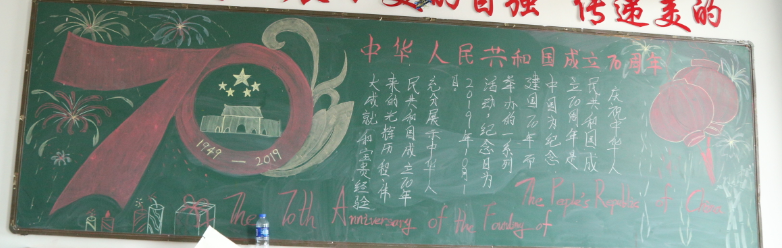 的自强 传递美的
中华人民共和国成立70周年
70
1949—2019
庆祝中华人
民共和国成
立70周年是
中国为纪念
建国70年而
举办的一系列
活动,纪念日为
2019年10月1
日。
充分展示中华人
民共和国成立70年
来的光辉历程、伟
大成就和宝贵经验
The 70th Anniversary of the Founding of
The People's Republic of China